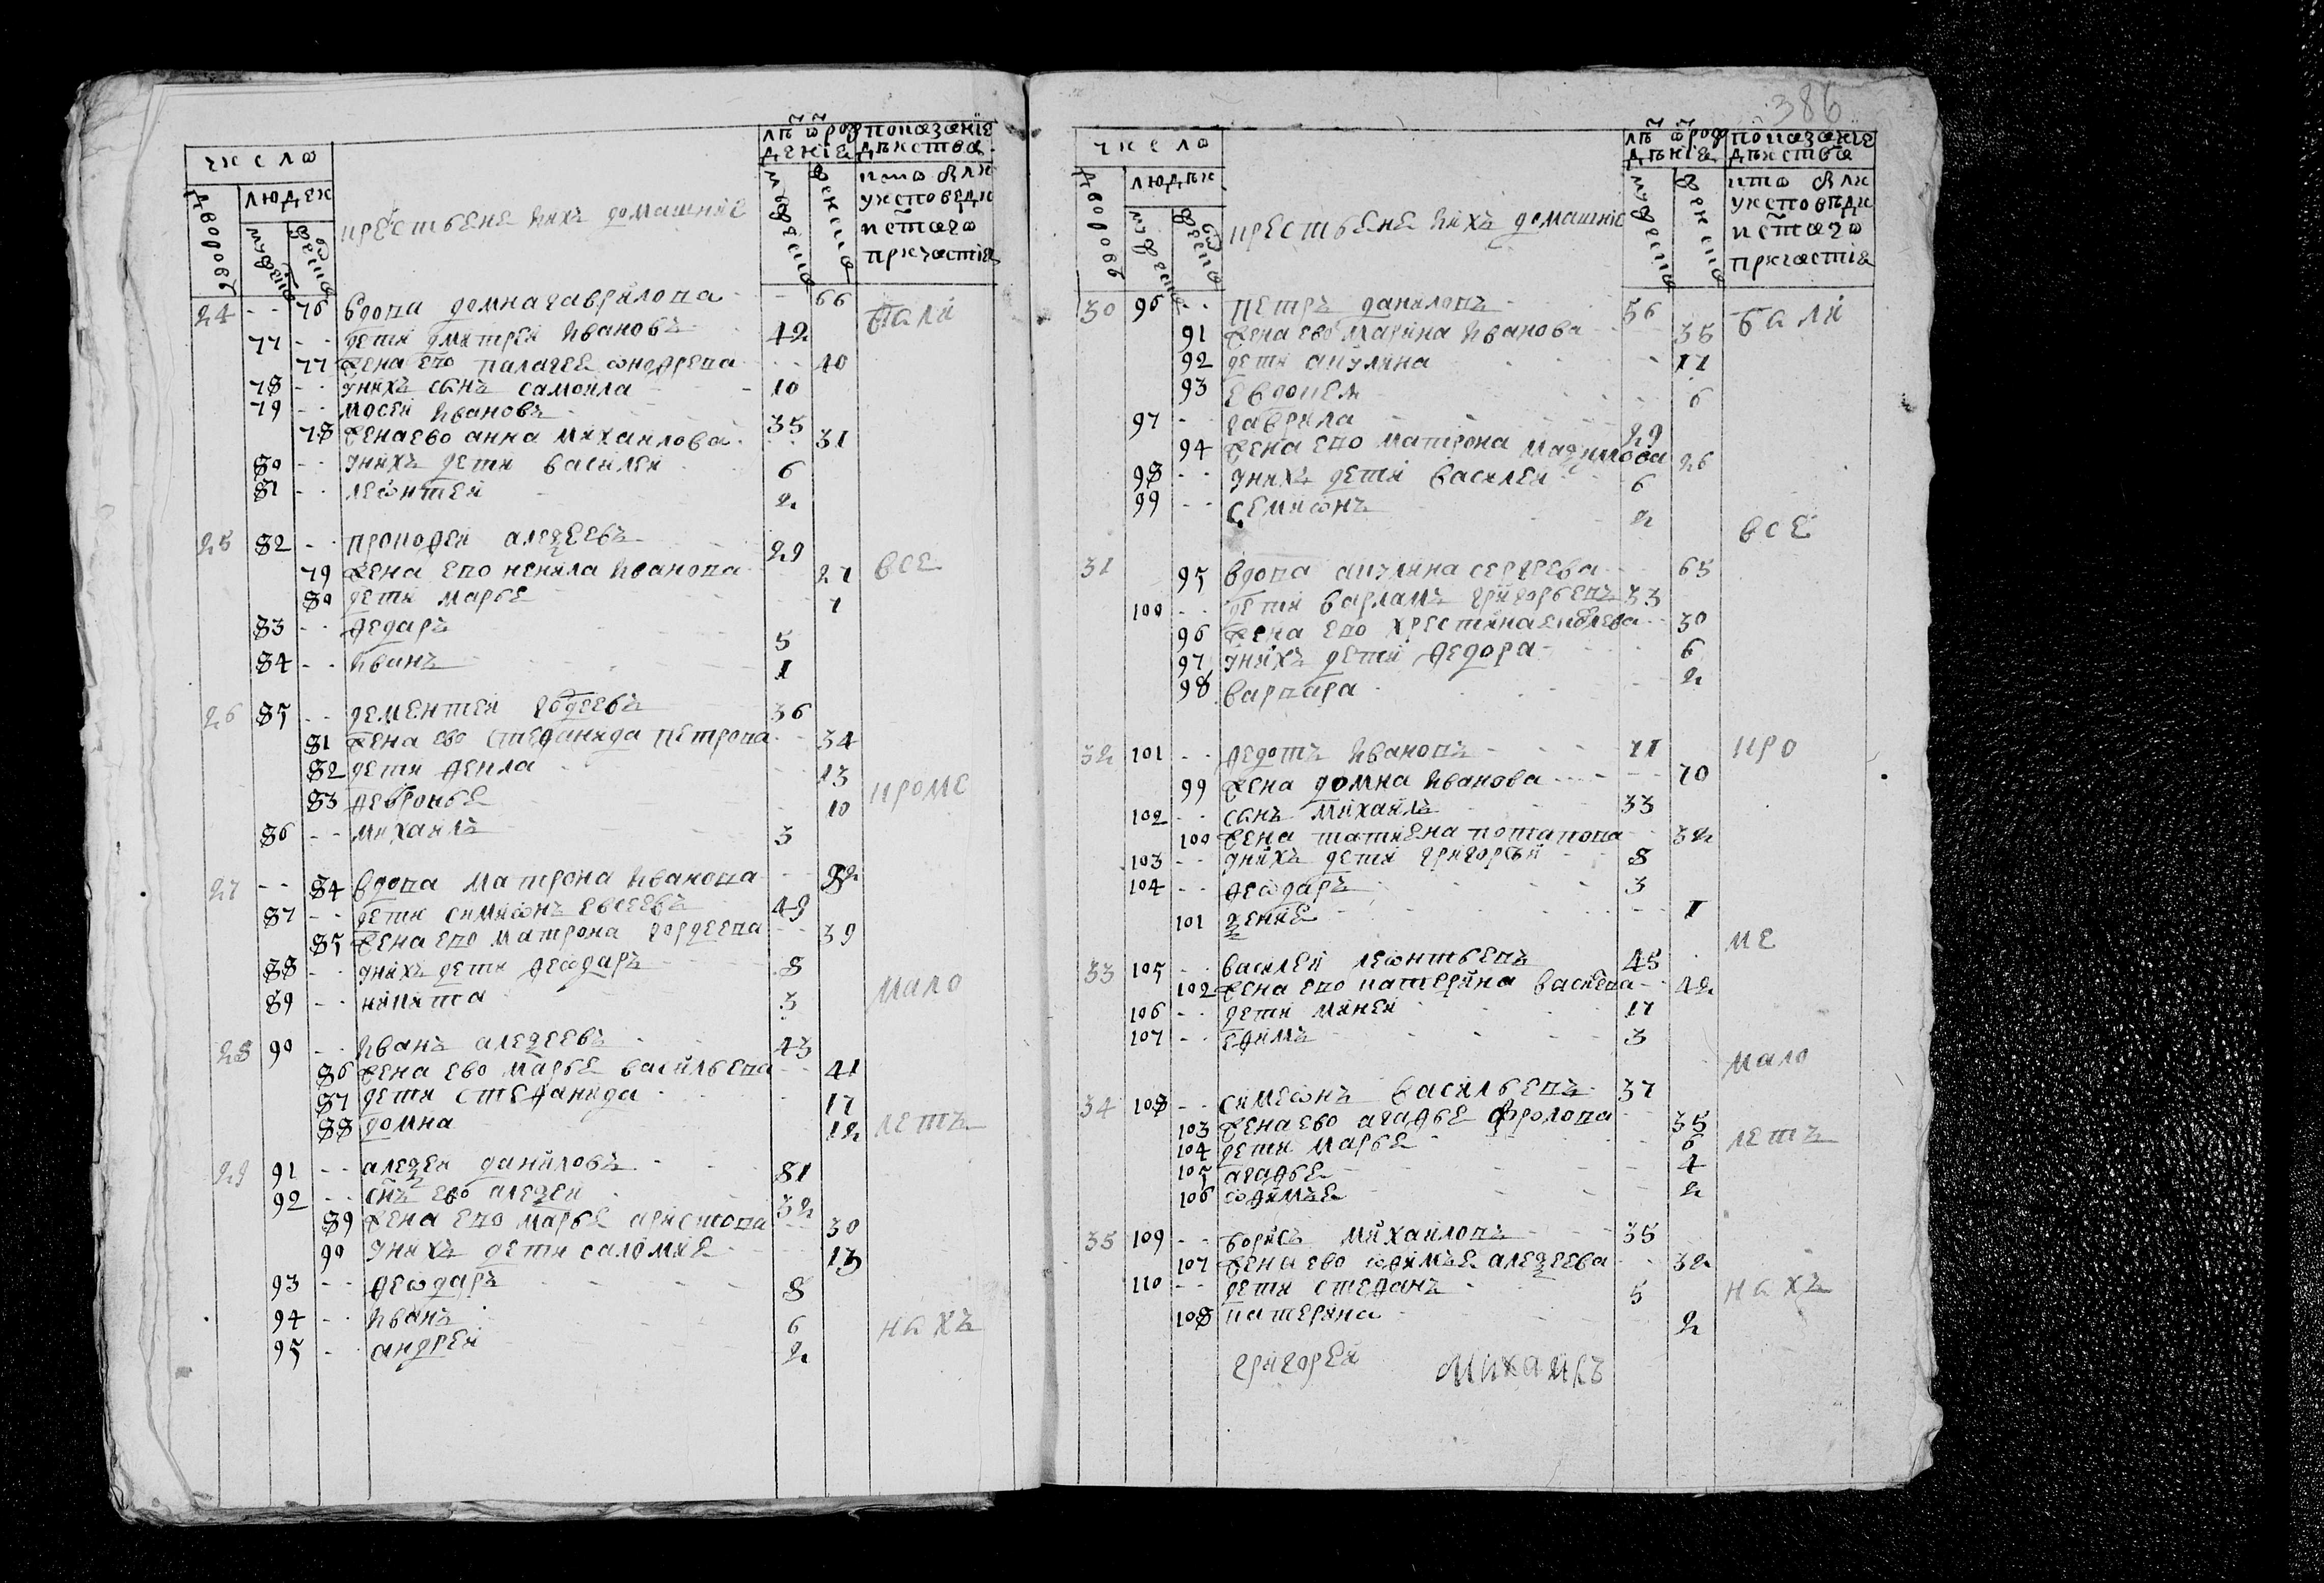 число
лѣ ѿ рож показаніе
деніѧ дѣиства
дворовъ
людеи
мужеска
женска
крестьѧне ихъ домашние
мужеска
женска
кто были
у исповеди
и ст҃аго
причастіѧ
24 - - 76 вдова домна гаврилова - 66 были
77 - - дети дмитреи иванов 42
77 жена ево палагеѧ - - 40
78 - - у них сынъ самоила - 10
79 - - мосеи ивановъ 35
78 жена ево анна михаилова - - 31
80 - - у нихъ дети василеи 6
81 - - леѡнтеи 2
25 82 - - прокофеи алеѯеевъ 29
79 жена ево ненила иванова 27 все
80 дети марьѧ 7
83 - - федоръ 5
84 - - иванъ 1
26 85 - - дементеи авдеевъ 36
81 жена ево стефанида петрова - - 34
82 дети фекла 13
83 февроньѧ 10 кроме
86 - - михаилъ 3
27 - - 84 вдова матрона иванова - - 82
87 - - дети симиѡнъ евсеевъ 49
85 жена ево матрона гордеева - - 39
88 - - у нихъ дети феѡдоръ 8
89 - - никита 3 мало
28 90 - - иванъ алеѯеевъ 43
86 жена ево марьѧ васильева - - 41
87 дети стефанида 17
88 домна 12 летъ
29 91 - - алеѯеи даниловъ 81
92 - - сн҃ъ ево алеѯеи 32
89 жена ево марьѧ аристова - - 30
90 у нихъ дети саломиѧ 13
93 - - феѡдоръ 8
94 - - иванъ 6 ныхъ
95 - - андреи 2
386
число
лѣ ѿ рож показание
дѣніѧ дѣиства
дворовъ
людѣи
мужеска
женска
крестьѧне ихъ домашние
мужеска
женска
кто были
у исповѣди
и ст҃аго
причастіѧ
30 96 - - петръ даниловъ 56 были
91 жена ево марина иванова 35
92 дети акулина 11
93 евдокеѧ 6
97 - гаврила 29
94 жена ево матрона маѯимова 26
98 - - у нихъ дети василеи 6
99 - - семиѡнъ 2
все
31 95 вдова акулина сергеева 65
100 - - дети варламъ григорьевъ 33
96 жена ево хрестина - - 30
97 у нихъ дети федора 6
98 варвара 2
32 101 - - федотъ ивановъ 71 кро
99 жена домна иванова - - 70
102 - - сынъ михаилъ 33
100 жена татиѧна потапова - - 32
103 - - у нихъ дети григореи - - 8
104 - - феѡдоръ 3
101 ѯениѧ - - 1
ме
33 105 - - василеи леѡнтьевъ 45
102 жена ево катерина васиева - - 42
106 - - дети минеи 17
107 - - ефимъ 3
мало
34 108 - - симеонъ васильевъ 37
103 жена ево агафьѧ фролова 35
104 дети марьѧ 6 летъ
105 агафьѧ 4
106 ѡфимьѧ 2
35 109 - - борисъ михаиловъ 35
107 жена ево ѡфимьѧ алеѯеева - - 32
110 - - дети стефанъ 5 ныхъ
108 катерина 2
григореи михаилъ